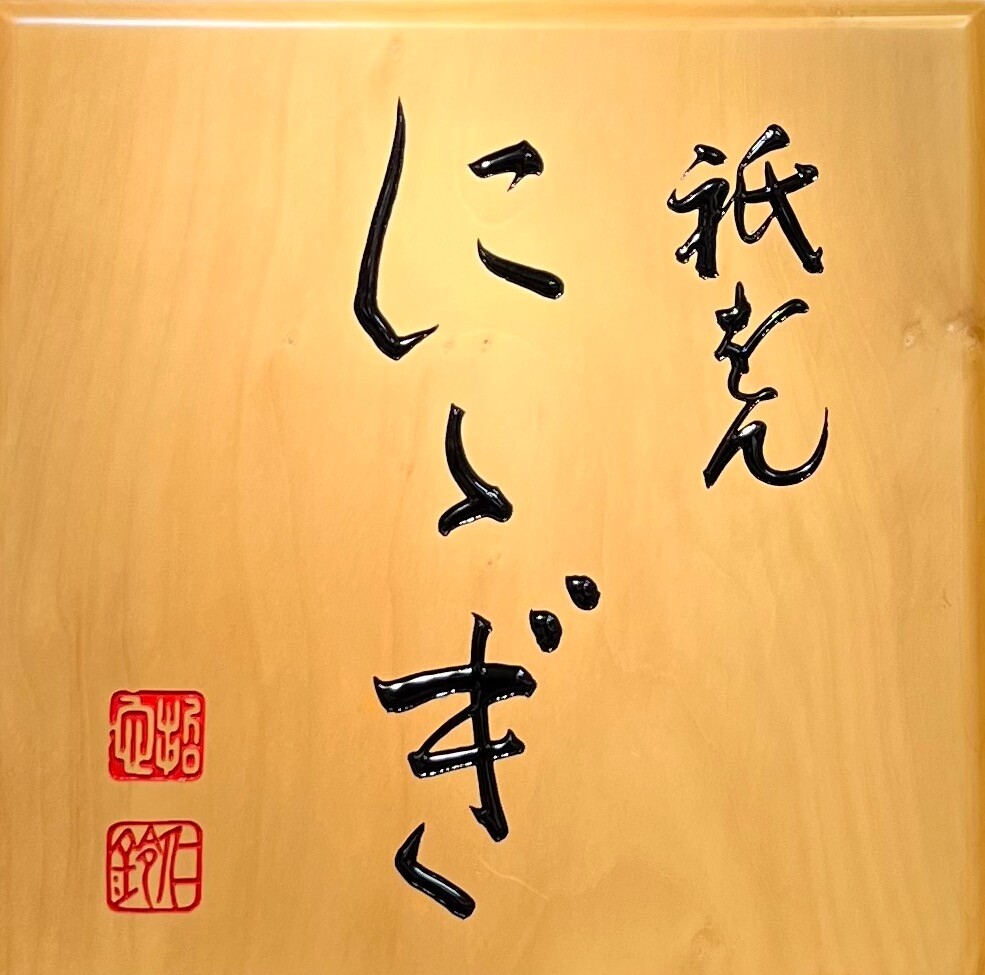 祇をん
にゝぎ